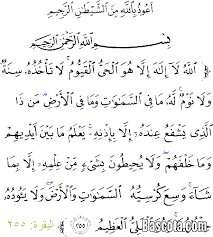 أَعُوذُ بِاللَّهِ مِنَ الشَّيْطَانِ الرَّجِيمِ
بِسْمِ اللَّهِ الرَّحْمَٰنِ الرَّحِيمِ
﴿ اللَّهُ لَا إِلَٰهَ إِلَّا هُوَ الْحَيُّ الْقَيُّومُ لَا تَأْخُذُهُ سِنَةٌ
وَلَا نَوْمٌ لَهُ مَا فِي السَّمَٰوَٰتِ وَمَا فِي الْأَرْضِ مَنْ ذَا
الَّذِي يَشْفَعُ عِنْدَهُ إِلَّا بِإِذْنِهِ يَعْلَمُ مَا بَيْنَ أَيْدِيهِمْ
وَمَا خَلْفَهُمْ وَلَا يُحِيطُونَ بِشَيْءٍ مِنْ عِلْمِهِ إِلَّا بِمَا
شَاءَ وَسِعَ كُرْسِيُّهُ السَّمَٰوَٰتِ وَالْأَرْضَ وَلَا يَئُودُهُ
الْعَلِيُّ الْعَظِيمُ ﴿٢٥٥﴾ البقرة: ٢٥٥
Bascota.com